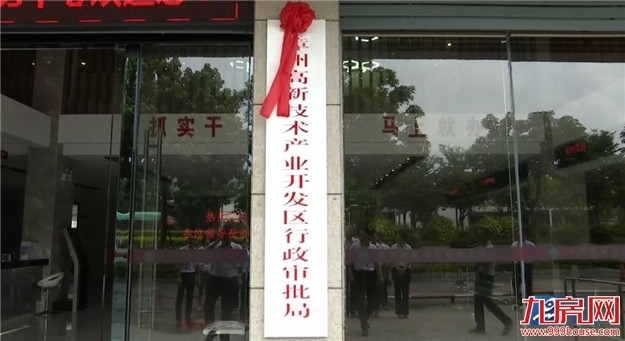 中心欢迎您
抓实干
漳州高新技术产业开发区行政审批局
马上就办
九房网
www.999house.com